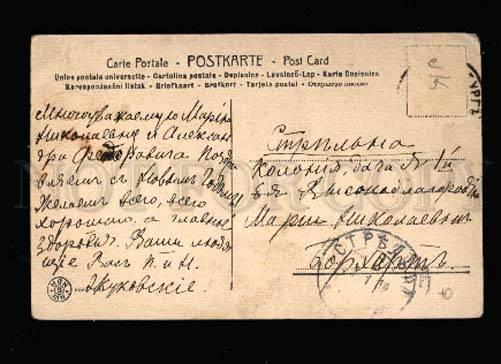 Carte Postale - POSTKARTE - Post Card
Union postale universelle - Cartolina postale - Dopisnice - Levelező-Lap - Karta Dopisnica
Korespondenční lístek - Briefkaart - Brefkort - Tarjeta postal - Открытое письмо
Многоуважаемую Марью
Николаевну и Алексан
дра Федоровича Поздра
вляем съ Новымъ Годомъ
Желаем всего, всего
хорошаго, а главное
здоровія. Ваши любя
щіе Васъ П. и Н.
Жуковскіе.
Стрѣльна
Колонія, дача № 14
Высокоблагородію
Маріи Николаевнѣ
СТРѢЛЬНА